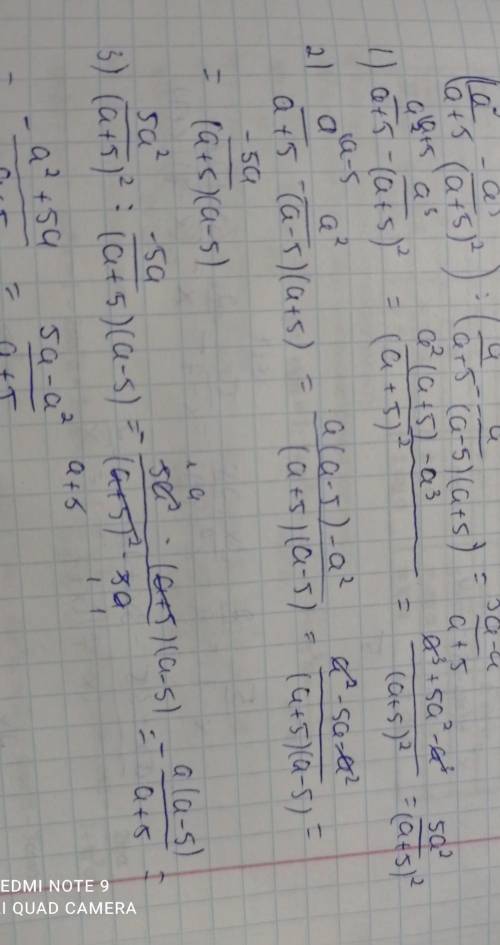 (a²/(a+5) - a³/(a+5)²) : (a/(a+5) - a²/((a-5)(a+5))) = (5a-a²)/(a+5)
1) a²\a+5/(a+5) - a³/(a+5)² = (a²(a+5)-a³)/(a+5)² = (a³+5a²-a³)/(a+5)² = 5a²/(a+5)²
2) a\a-5/(a+5) - a²/((a-5)(a+5)) = (a(a-5)-a²)/((a+5)(a-5)) = (a²-5a-a²)/((a+5)(a-5)) =
= -5a/((a+5)(a-5))
3) 5a²/(a+5)² : -5a/((a+5)(a-5)) = - (5a² · (a+5)(a-5))/((a+5)² · 5a) = - a(a-5)/(a+5) =
= (5a-a²)/(a+5)
REDMI NOTE 9
AI QUAD CAMERA